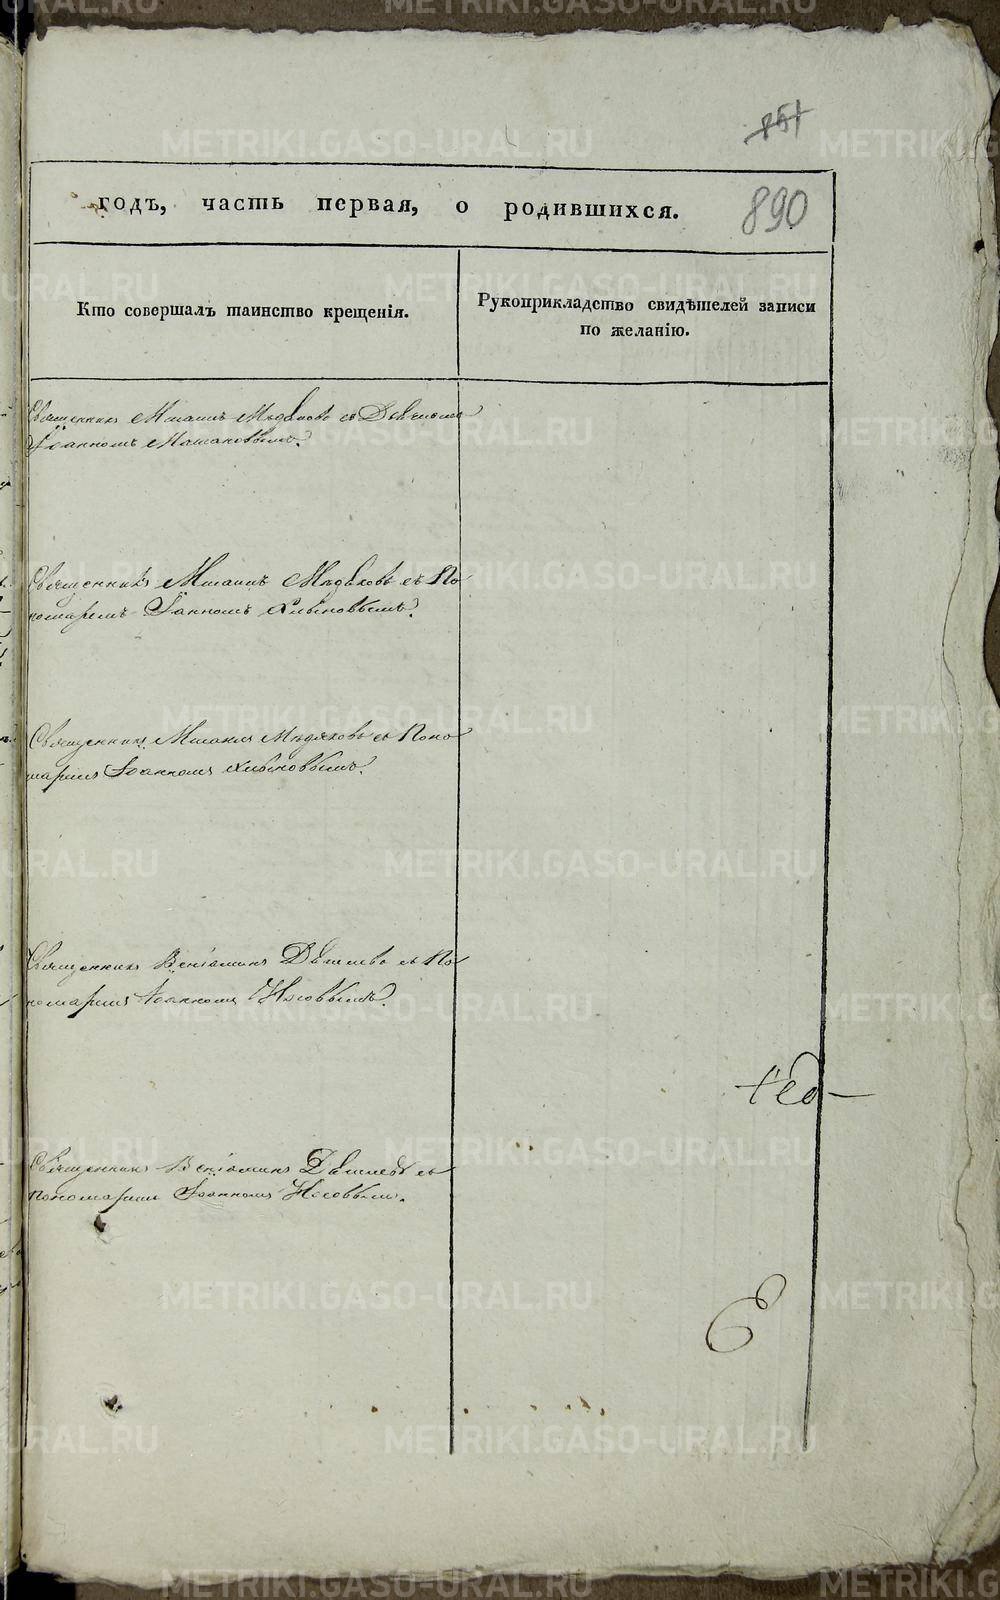 851
годъ, часть первая, о родившихся. 890
Кто совершалъ таинство крещенія.
Рукоприкладство свидѣтелей записи
по желанію.
Священникъ Мисаилъ Мѣдяковъ съ
Іоанномъ
Священникъ Мисаилъ Мѣдяковъ съ По
номаремъ Іоанномъ Хлыновымъ.
Священникъ Мисаилъ Мѣдяковъ съ Поно
маремъ Іоанномъ Хлыновымъ.
Священникъ Веніаминъ съ По
номаремъ Іоанномъ Носовымъ.
Священникъ Веніаминъ съ
пономаремъ Іоанномъ Носовымъ.
METRIKI.GASO-URAL.RU